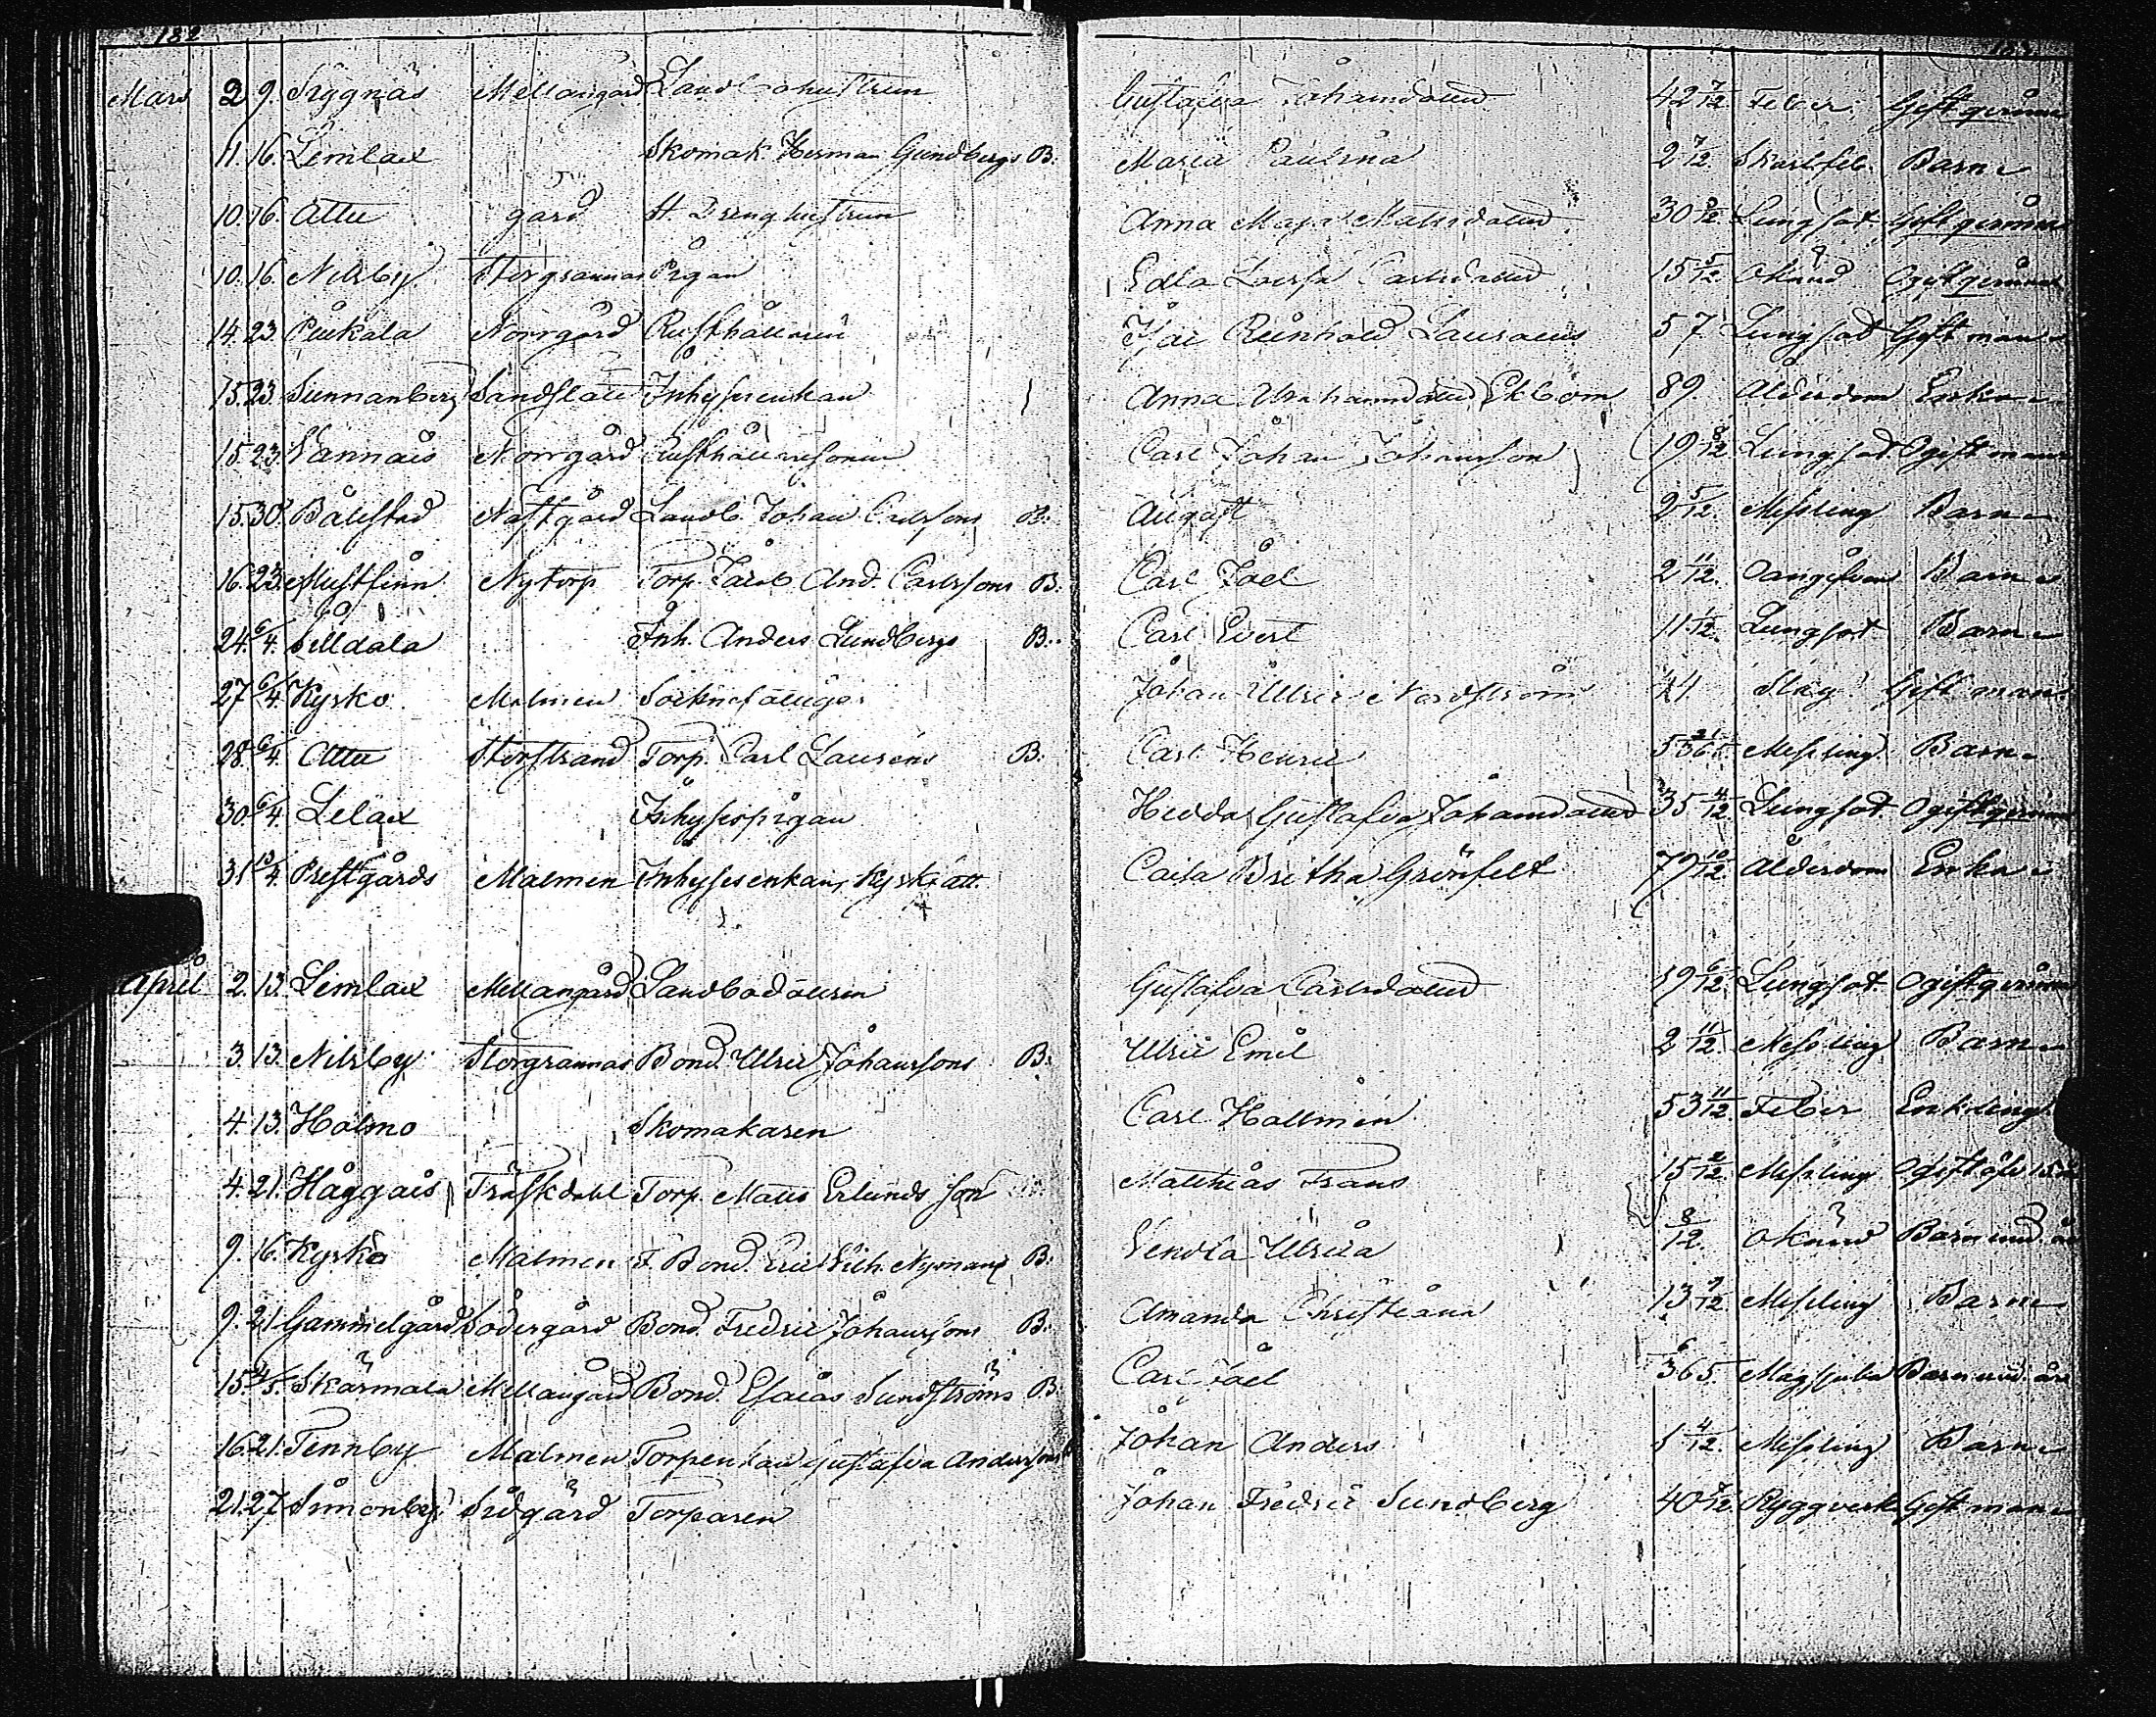 182
Mars 2 9. Siggnäs Mellangård Landb.hustrun Gustafva Johansdotter 42 7/12 Feber Gift qvinna
11. 16. Lemlax Skomak. Herman Grundbergs B. Maria Paulina 2 7/12 Skarl.feb. Barn
10. 16. Attu gård St. Dränghustrun Anna Maja Matsdotter 30 Lungsot Gift qvinna
10. 16. Nilsby Storgrannas Pigan Edla Lovisa Carlsdotter 15 5/12 Okänd Ogift qvinna
14. 23. Pjukala Norrgård Rusthållaren Isac Reinhold Lauræus 57 Lungsot Gift man
15. 23. Sunnanberg Inhysesenkan Anna Abrahamsdotter Ekbom 89. Ålderdom Enka
15. 23. Vannais Norrgård Rusthållaresonen Carl Johan Johansson 19 8/12 Lungsot Ogift man
15. 30. Bålestad Nästgård Landb. Johan Carlssons B. August 2 5/12 Messling Barn
16. 23. Mustfinn Nytorp Torp. Jacob And. Carlssons B. Carl Joel 2 11/12. Oangifven Barn
24. 6/4. Silldala Inh. Anders Lundbergs B. Carl Evert 11 1/12. Lungsot Barn
27 6/4. Kyrko Malmen Johan Ulric Nordström Slag Gift man
28. 6/4. Attu Storstrand Torp. Carl Laurens B. Carl Henric 5 21/365. Messling Barn
30. 6/4. Lelax Inhysespigan Hedda Gustafva Johansdotter 35 4/12. Lungsot. Ogift qvinna
31 13/4. Prestgårds Malmen Inhysesenkan, Kyrkfatt. Caisa Britha Grönfelt 79 10/12. Ålderdom Enka
April 2. 13. Lemlax Mellangård Landbodottren Gustafva Carlsdotter 19 6/12. Lungsot. Ogift qvinna
3. 13. Nilsby Storgrannas Bond. Ulric Johanssons B. Ulric Emil 2 11/12. Messling Barn
4. 13. Holmo Skomakaren Carl Hallmén 53 11/12 Feber Enkling
4. 21. Håggais Träskdahl Torp. Matts Erlunds son Matthias Frans 15 2/12. Messling Ogift öfv. 15
9. 16. Kyrko Malmen F. Bond. Eric Vilh. Nymans B. Vendla Ulrica 8/12. Okänd Barn und. år
9. 21. Gammelgård Södergård Bond. Fredric Johanssons B. Amanda Christiana 13 7/12. Messling Barn
15 4/5. Skärmola Mellangård Bond. Esaias Sundströms B. Carl Joel 6/365. Magsjuka Barn und. år
16. 21. Tennby Malmen Torpenkan Gustafva Anderssons Johan Anders 5 4/12. Messling Barn
21. 27. Simonby Sidgård Torparen Johan Fredric Sundberg 40 7/12 Ryggverk Gift man